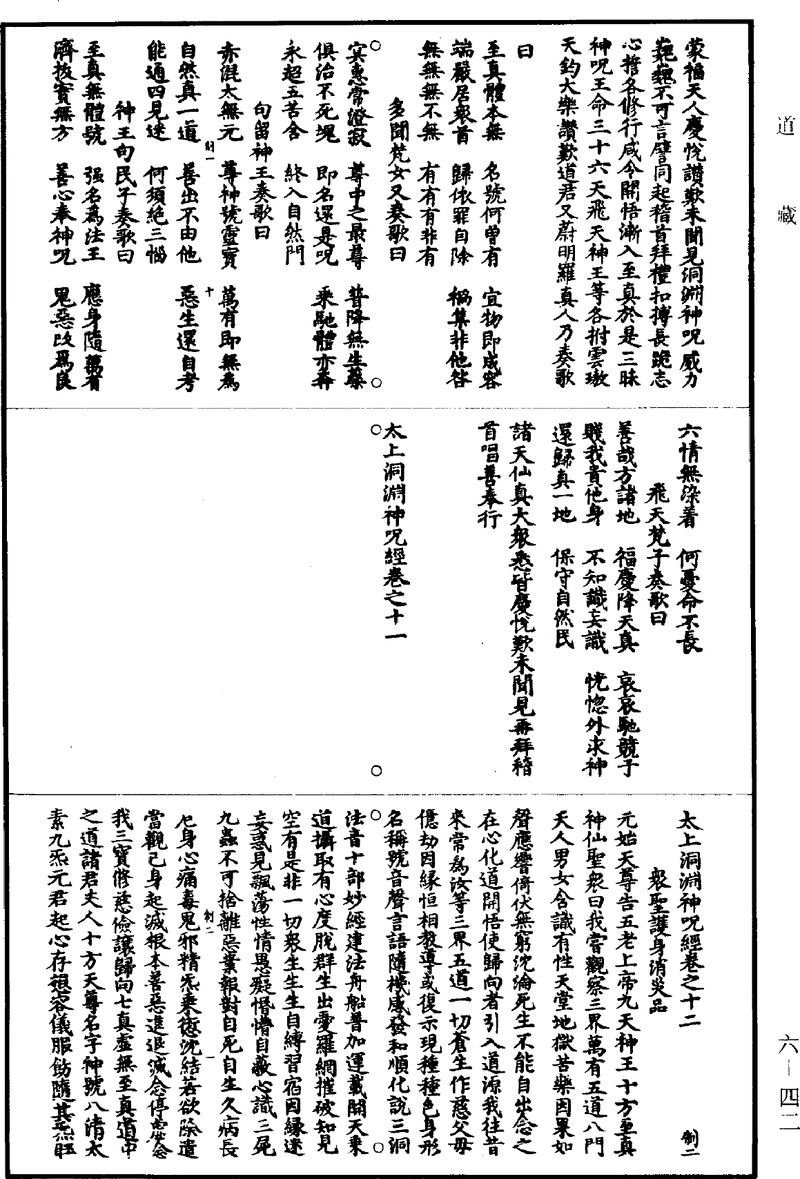 道藏
六—四二
蒙福天人慶悅讚歎未聞見洞淵神呪威力
巍巍不可言譬同起稽首拜禮扣摶長跪志
心誓各修行咸令開悟漸入至真於是三昧
神呪王命三十六天飛天神王等各拊雲璈
天鈞大樂讚歎道君又蔚明羅真人乃奏歌
曰
至真體本無　名號何曾有　宜物即成容
端嚴居衆首　歸依罪自除　禍集非他咎
無無無不無　有有有非有
多聞梵女又奏歌曰
冥惠常澄寂　尊中之最尊　普降無生藥
俱治不死魂　即名還是呪　乘馳體亦奔
永超五苦舍　終入自然門
句留神王奏歌曰
赤混太無元　尊神號靈寶　萬有即無為
自然真一道　善出不由他　惡生還自考
能通四見迷　何須絕三惱
神王句民子奏歌曰
至真無體號　强名為法王　應身隨萬有
濟拔實無方　善心奉神呪　鬼惡改為良
六情無染着　何憂命不長
飛天梵子奏歌曰
善哉方諸地　福慶降天真　哀哀馳競子
賤我貴他身　不知識妄識　恍惚外求神
還歸真一地　保守自然民
諸天仙真大衆悉皆慶悅歎未聞見再拜稽
首唱善奉行
太上洞淵神呪經卷之十一
太上洞淵神呪經卷之十二　制二
衆聖護身消災品
元始天尊告五老上帝九天神王十方至真
神仙聖衆曰我嘗觀察三界萬有五道八門
天人男女含識有性天堂地獄苦樂因果如
聲應響倚伏無窮沈淪死生不能自出念之
在心化道開悟使歸向者引入道源我往昔
來常為汝等三界五道一切蒼生作慈父母
億劫因緣恒相教導或復示現種種色身形
名稱號音聲言語隨機感發和順化說三洞
法音十部妙經建法舟船普加運載開天乘
道攝取有心度脫群生出愛羅網摧破知見
空有是非一切衆生生生自縛習宿因緣迷
妄惑見飄蕩性情愚癡惛懵自蔽心識三屍
九蟲不可捨離惡業報對自死自生久病長
尪身心痛毒鬼邪精炁乘德沈結若欲除遣
當觀己身起滅根本善惡進退滅念停念
我三寶修慈儉讓歸向七真虛無至真道中
之道諸君丈人十方天尊名字神號八清太
素九炁元君起心存禮容儀服飭隨其炁